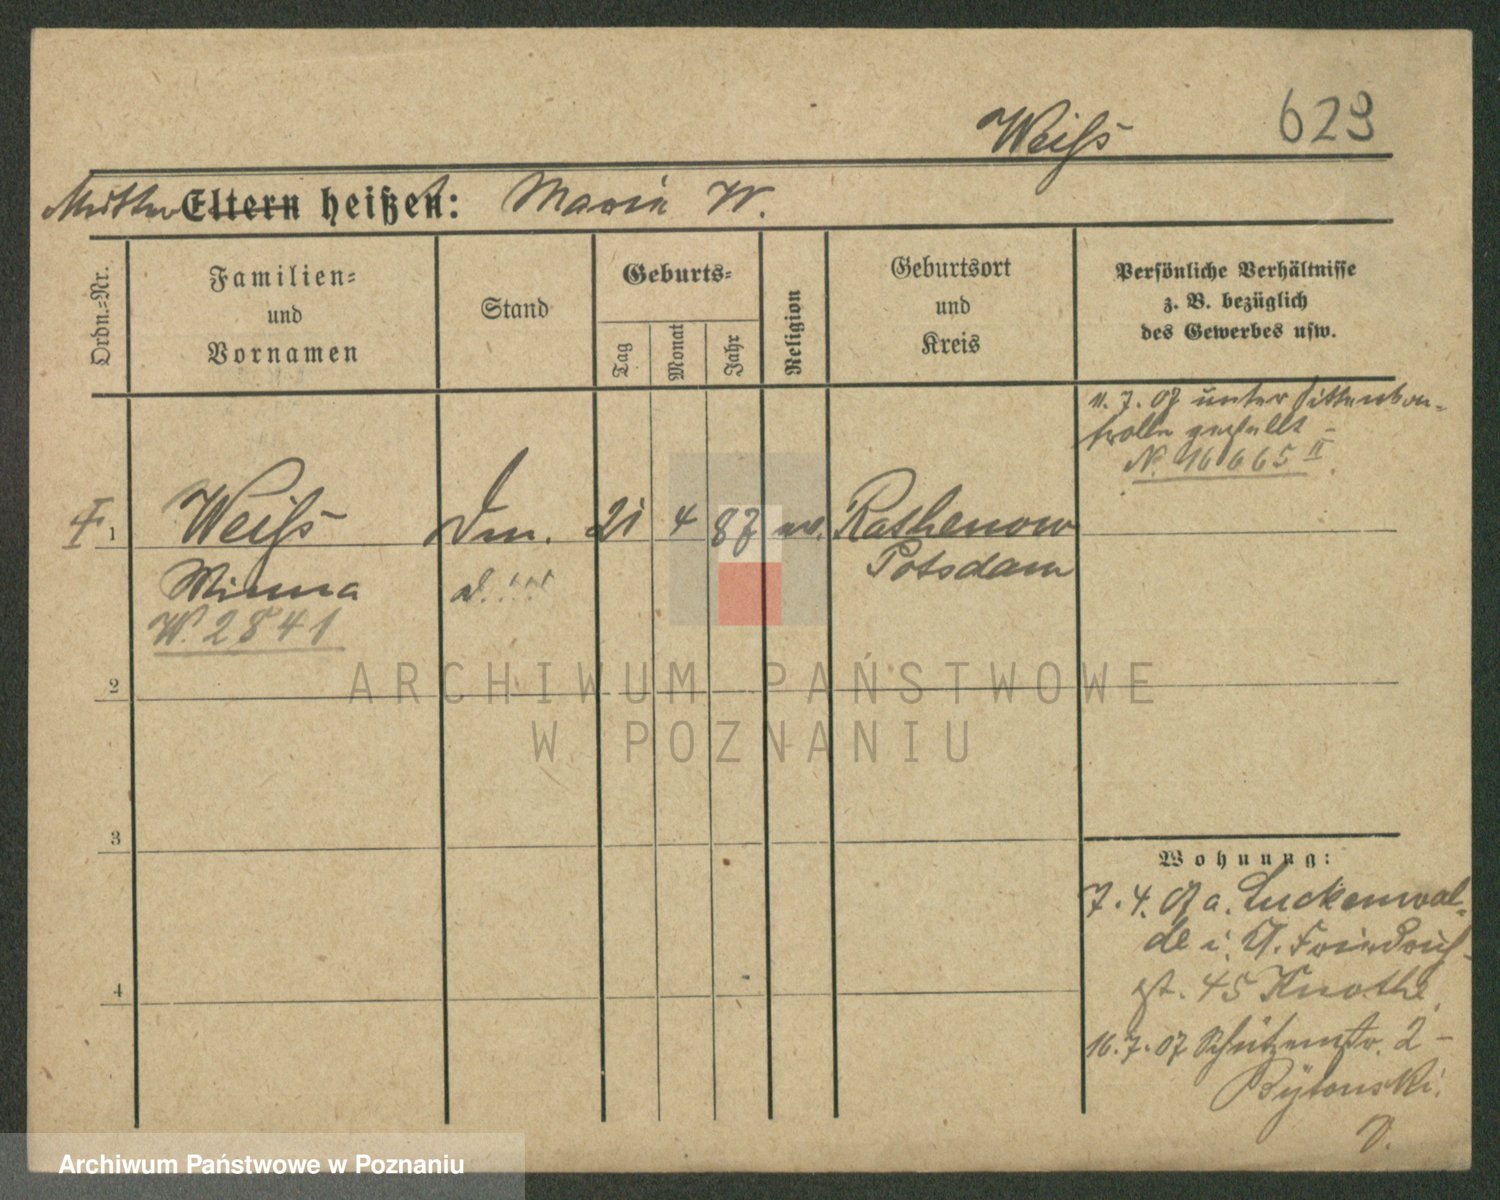 Weiß
629
Mutter Eltern heißen: Maria W.
Ordn.-Nr.
Familien-
und
Vornamen
Stand
Geburts-
Tag
Monat
Jahr
Religion
Geburtsort
und
Kreis
Persönliche Verhältnisse
z. B. bezüglich
des Gewerbes usw.
11. 7. 07 unter Sittenkon-
trolle gestellt -
N. 16665 II
1 Weiß 21 4 87 Rathenow
Minna Potsdam
W. 2841
2
3
4
Wohnung:
7. 4. 07 a. Luckenwal-
de i. Friedrich-
st. 45 Knothe.
16. 7. 07 Schützenstr. 2 -
Bytonski.
ARCHIWUM PAŃSTWOWE
W POZNANIU
Archiwum Państwowe w Poznaniu